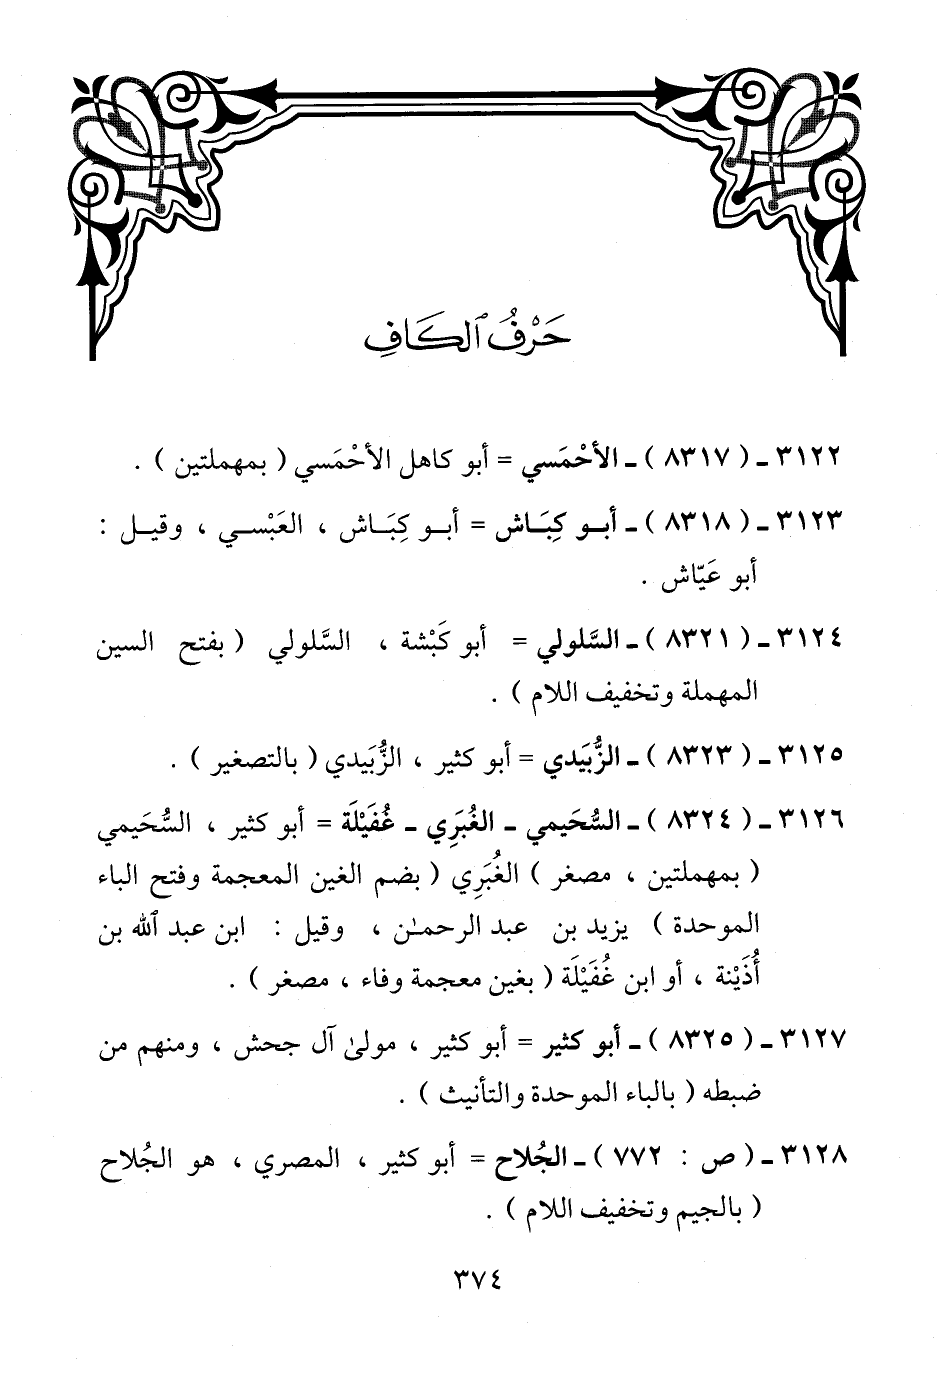 حَرْفُ ٱلكَافِ
٣١٢٢ ـ ( ٨٣١٧ ) ـ الأحْمَسي = أبو كاهل الأحْمَسي ( بمهملتين ) .
٣١٢٣ ـ ( ٨٣١٨ ) ـ أبـو كِبَـاش = أبـو كِبَـاش ، العَبْسـي ، وقيـل :
أبو عَيّاش .
٣١٢٤ ـ ( ٨٣٢١ ) ـ السَّلولي = أبو كَبْشة ، السَّلولي ( بفتح السين
المهملة وتخفيف اللام ) .
٣١٢٥ ـ ( ٨٣٢٣ ) ـ الزُّبَيدي = أبو كثير ، الزُّبَيدي ( بالتصغير ) .
٣١٢٦ ـ ( ٨٣٢٤ ) ـ السُّحَيمي ـ الغُبَرِي ـ غُفَيْلَة = أبو كثير ، السُّحَيمي
( بمهملتين ، مصغر ) الغُبَرِي ( بضم الغين المعجمة وفتح الباء
الموحدة ) يزيد بن عبد الرحمـٰن ، وقيل : ابن عبد ٱلله بن
أُذَيْنة ، أو ابن غُفَيْلَة ( بغين معجمة وفاء ، مصغر ) .
٣١٢٧ ـ ( ٨٣٢٥ ) ـ أبو كثير = أبو كثير ، مولىٰ آل جحش ، ومنهم من
ضبطه ( بالباء الموحدة والتأنيث ) .
٣١٢٨ ـ ( ص : ٧٧٢ ) ـ الجُلاح = أبو كثير ، المصري ، هو الجُلاح
( بالجيم وتخفيف اللام ) .
٣٧٤